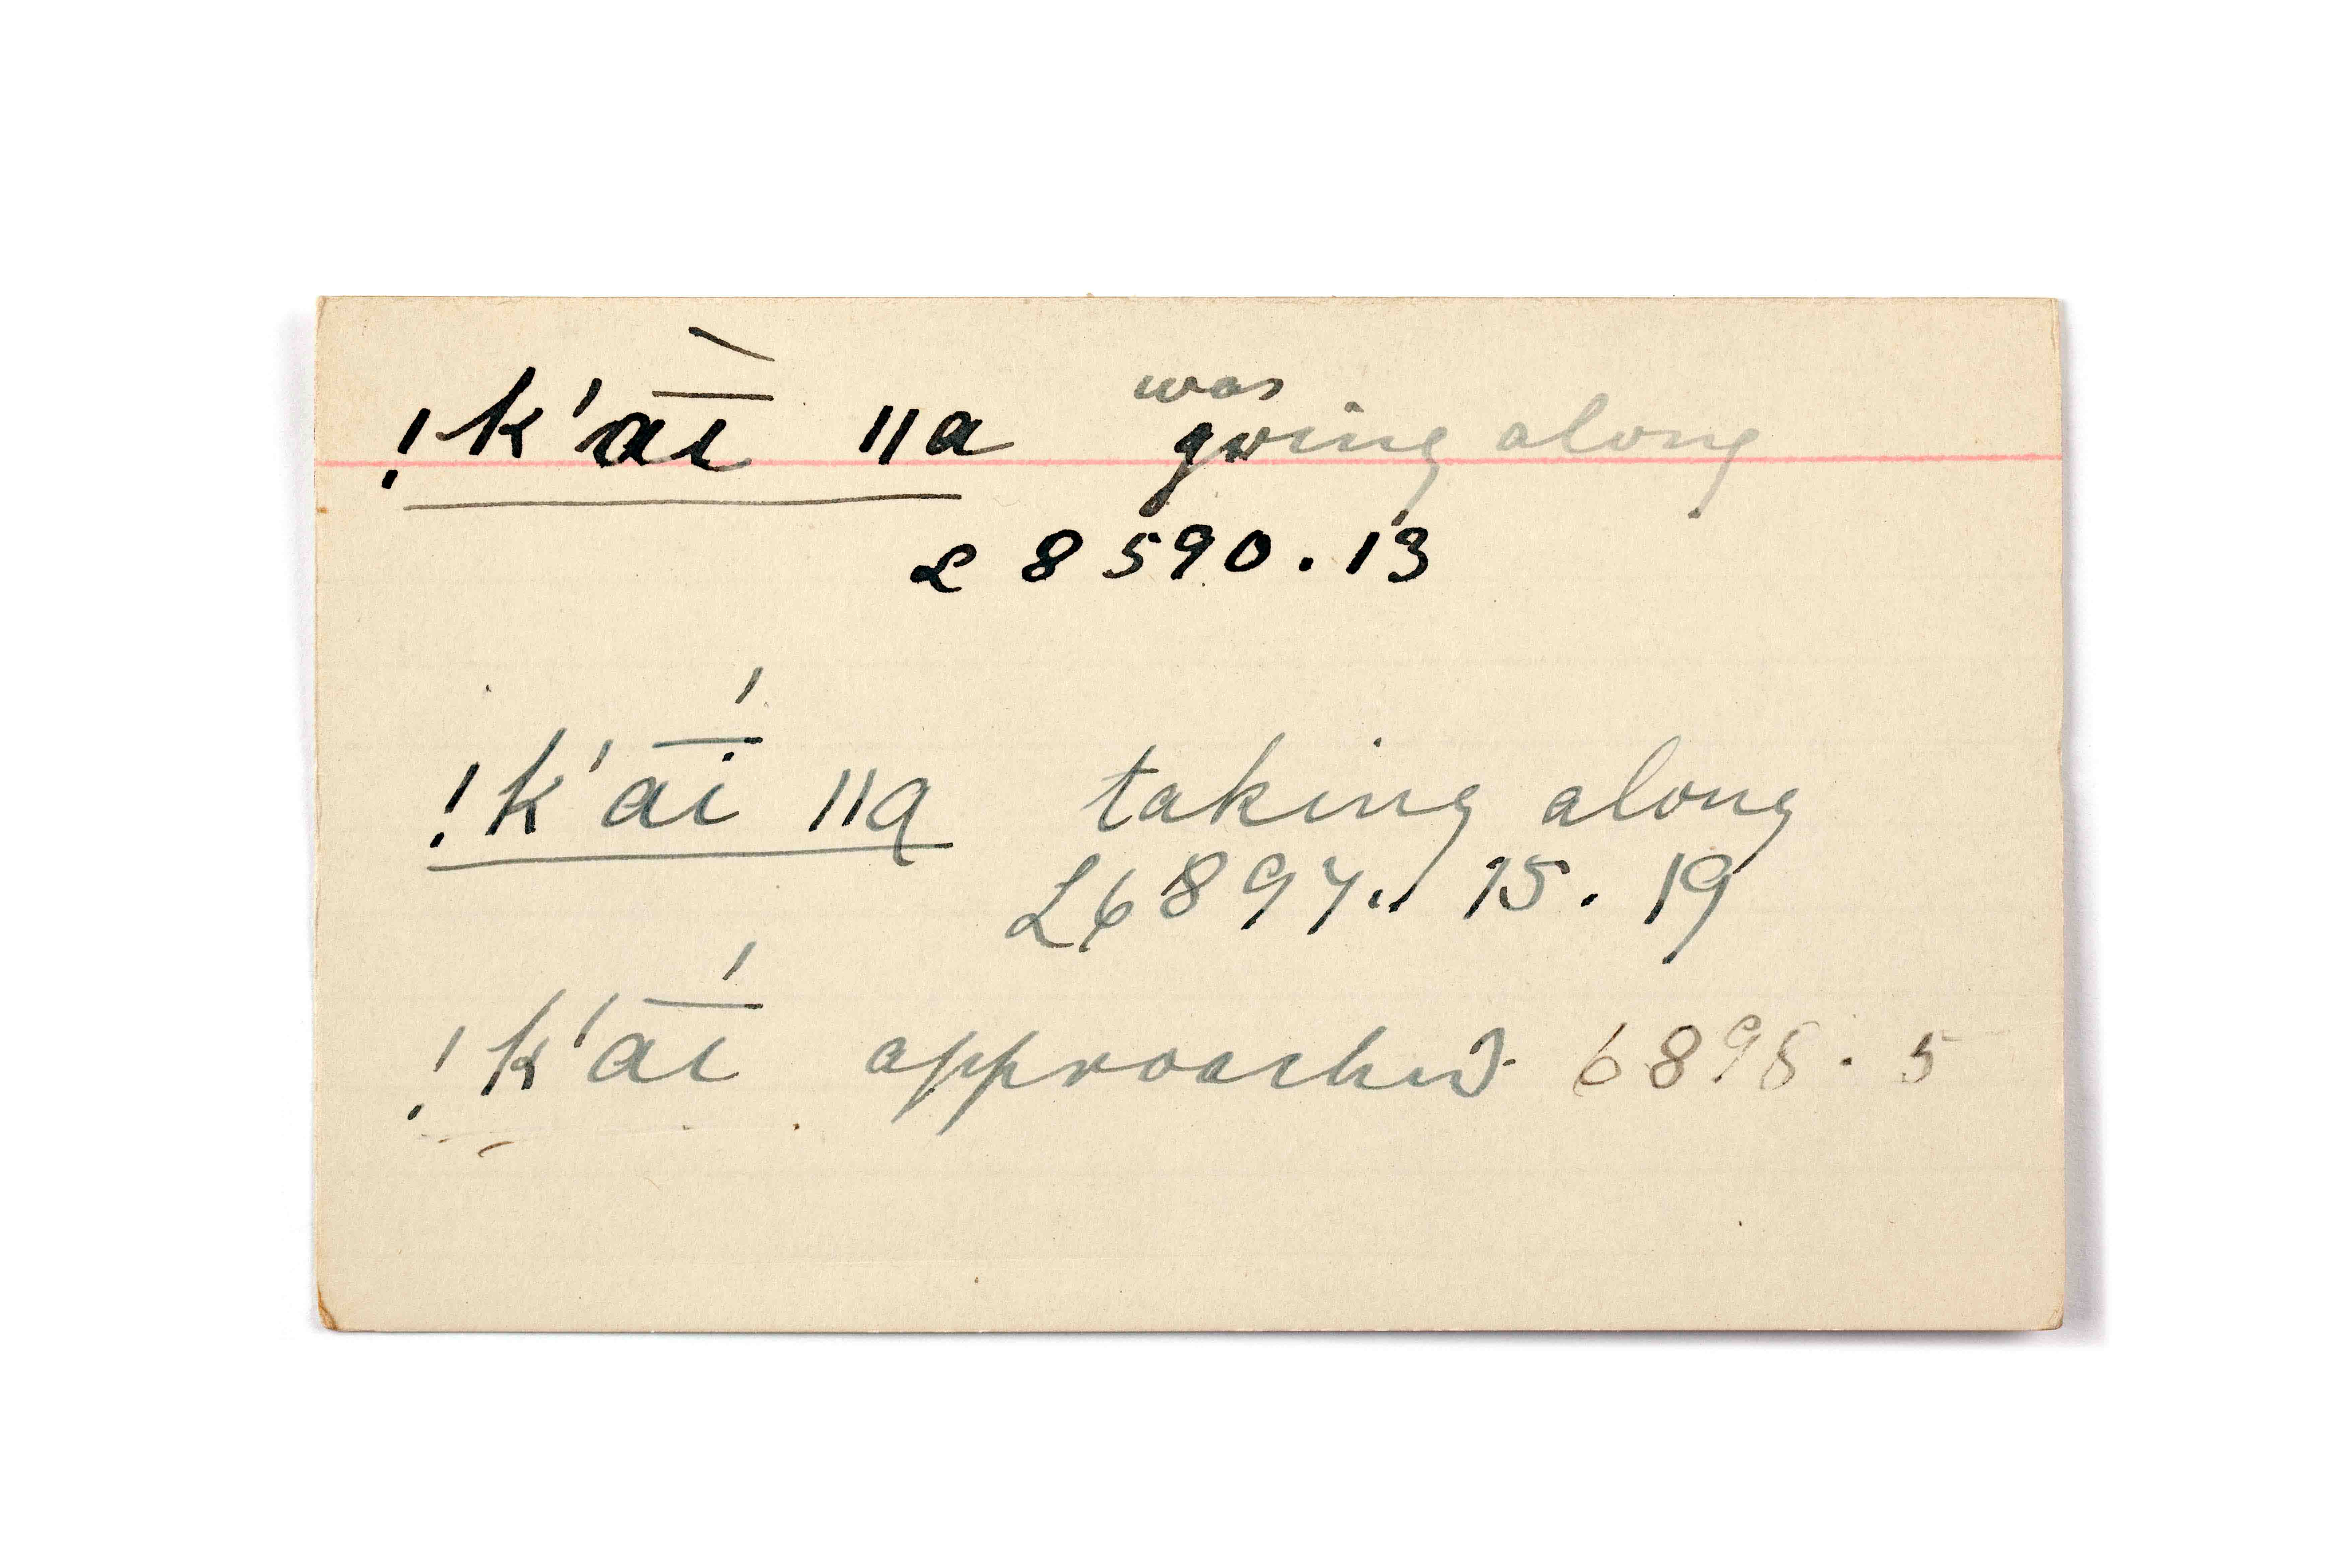 was
!k'aī̀ ǁa going along
L 8590.13
!k'aī́ ǁa taking along
L6897. 15. 19
!k'aī́ approached 6898. 5